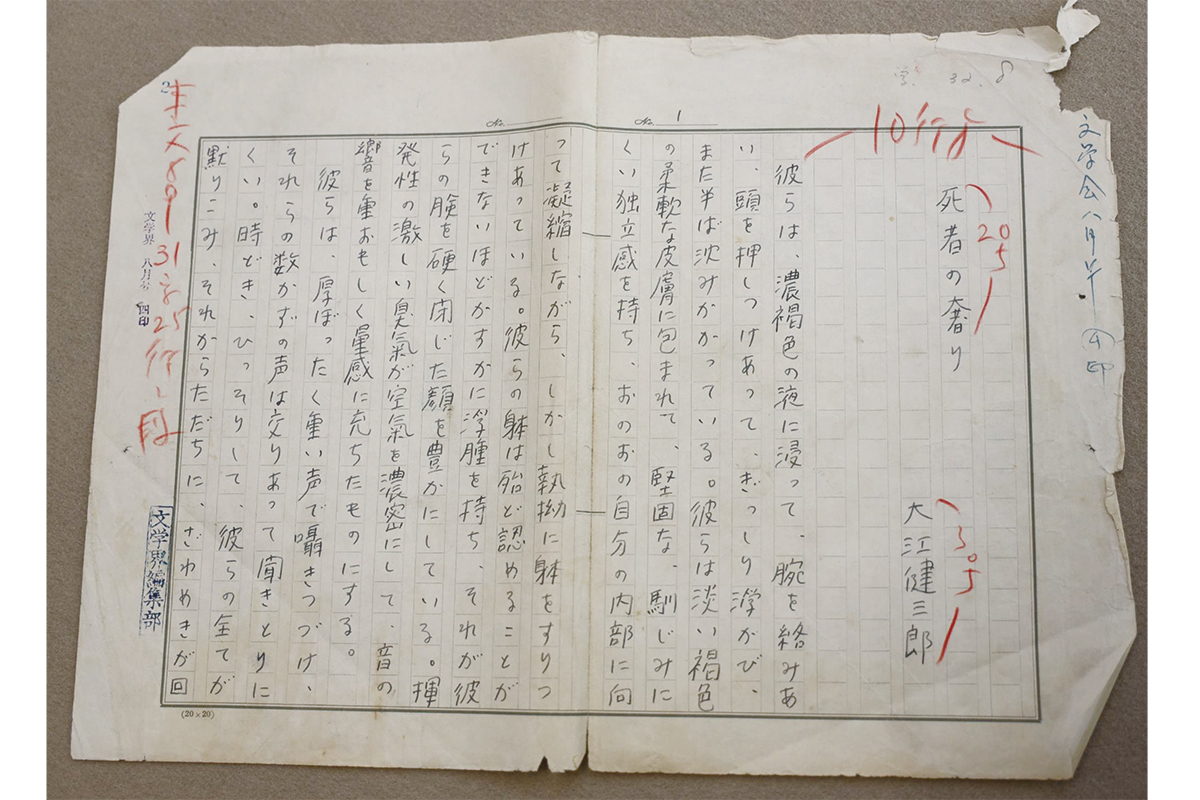 文学会八月号 四印
32.8
No. 1
10行分
20
5
死者の奢り
大江健三郎
　彼らは、濃褐色の液に浸って、腕を絡みあ
い、頭を押しつけあって、ぎっしり浮かび、
また半ば沈みかかっている。彼らは淡い褐色
の柔軟な皮膚に包まれて、堅固な、馴じみに
くい独立感を持ち、おのおの自分の内部に向
って凝縮しながら、しかし執拗に躰をすりつ
けあっている。彼らの躰は殆ど認めることが
できないほどかすかに浮腫を持ち、それが彼
らの瞼を硬く閉じた顔を豊かにしている。揮
発性の激しい臭氣が空氣を濃密にして、音の
響を重おもしく量感に充ちたものにする。
　彼らは、厚ぼったく重い声で囁きつづけ、
それらの数かずの声は交りあって聞きとりに
くい。時どき、ひっそりして、彼らの全てが
黙りこみ、それからただちに、ざわめきが回
No.
(20×20)
2
31字25行2段
文学界 八月号 四印
文学界編集部